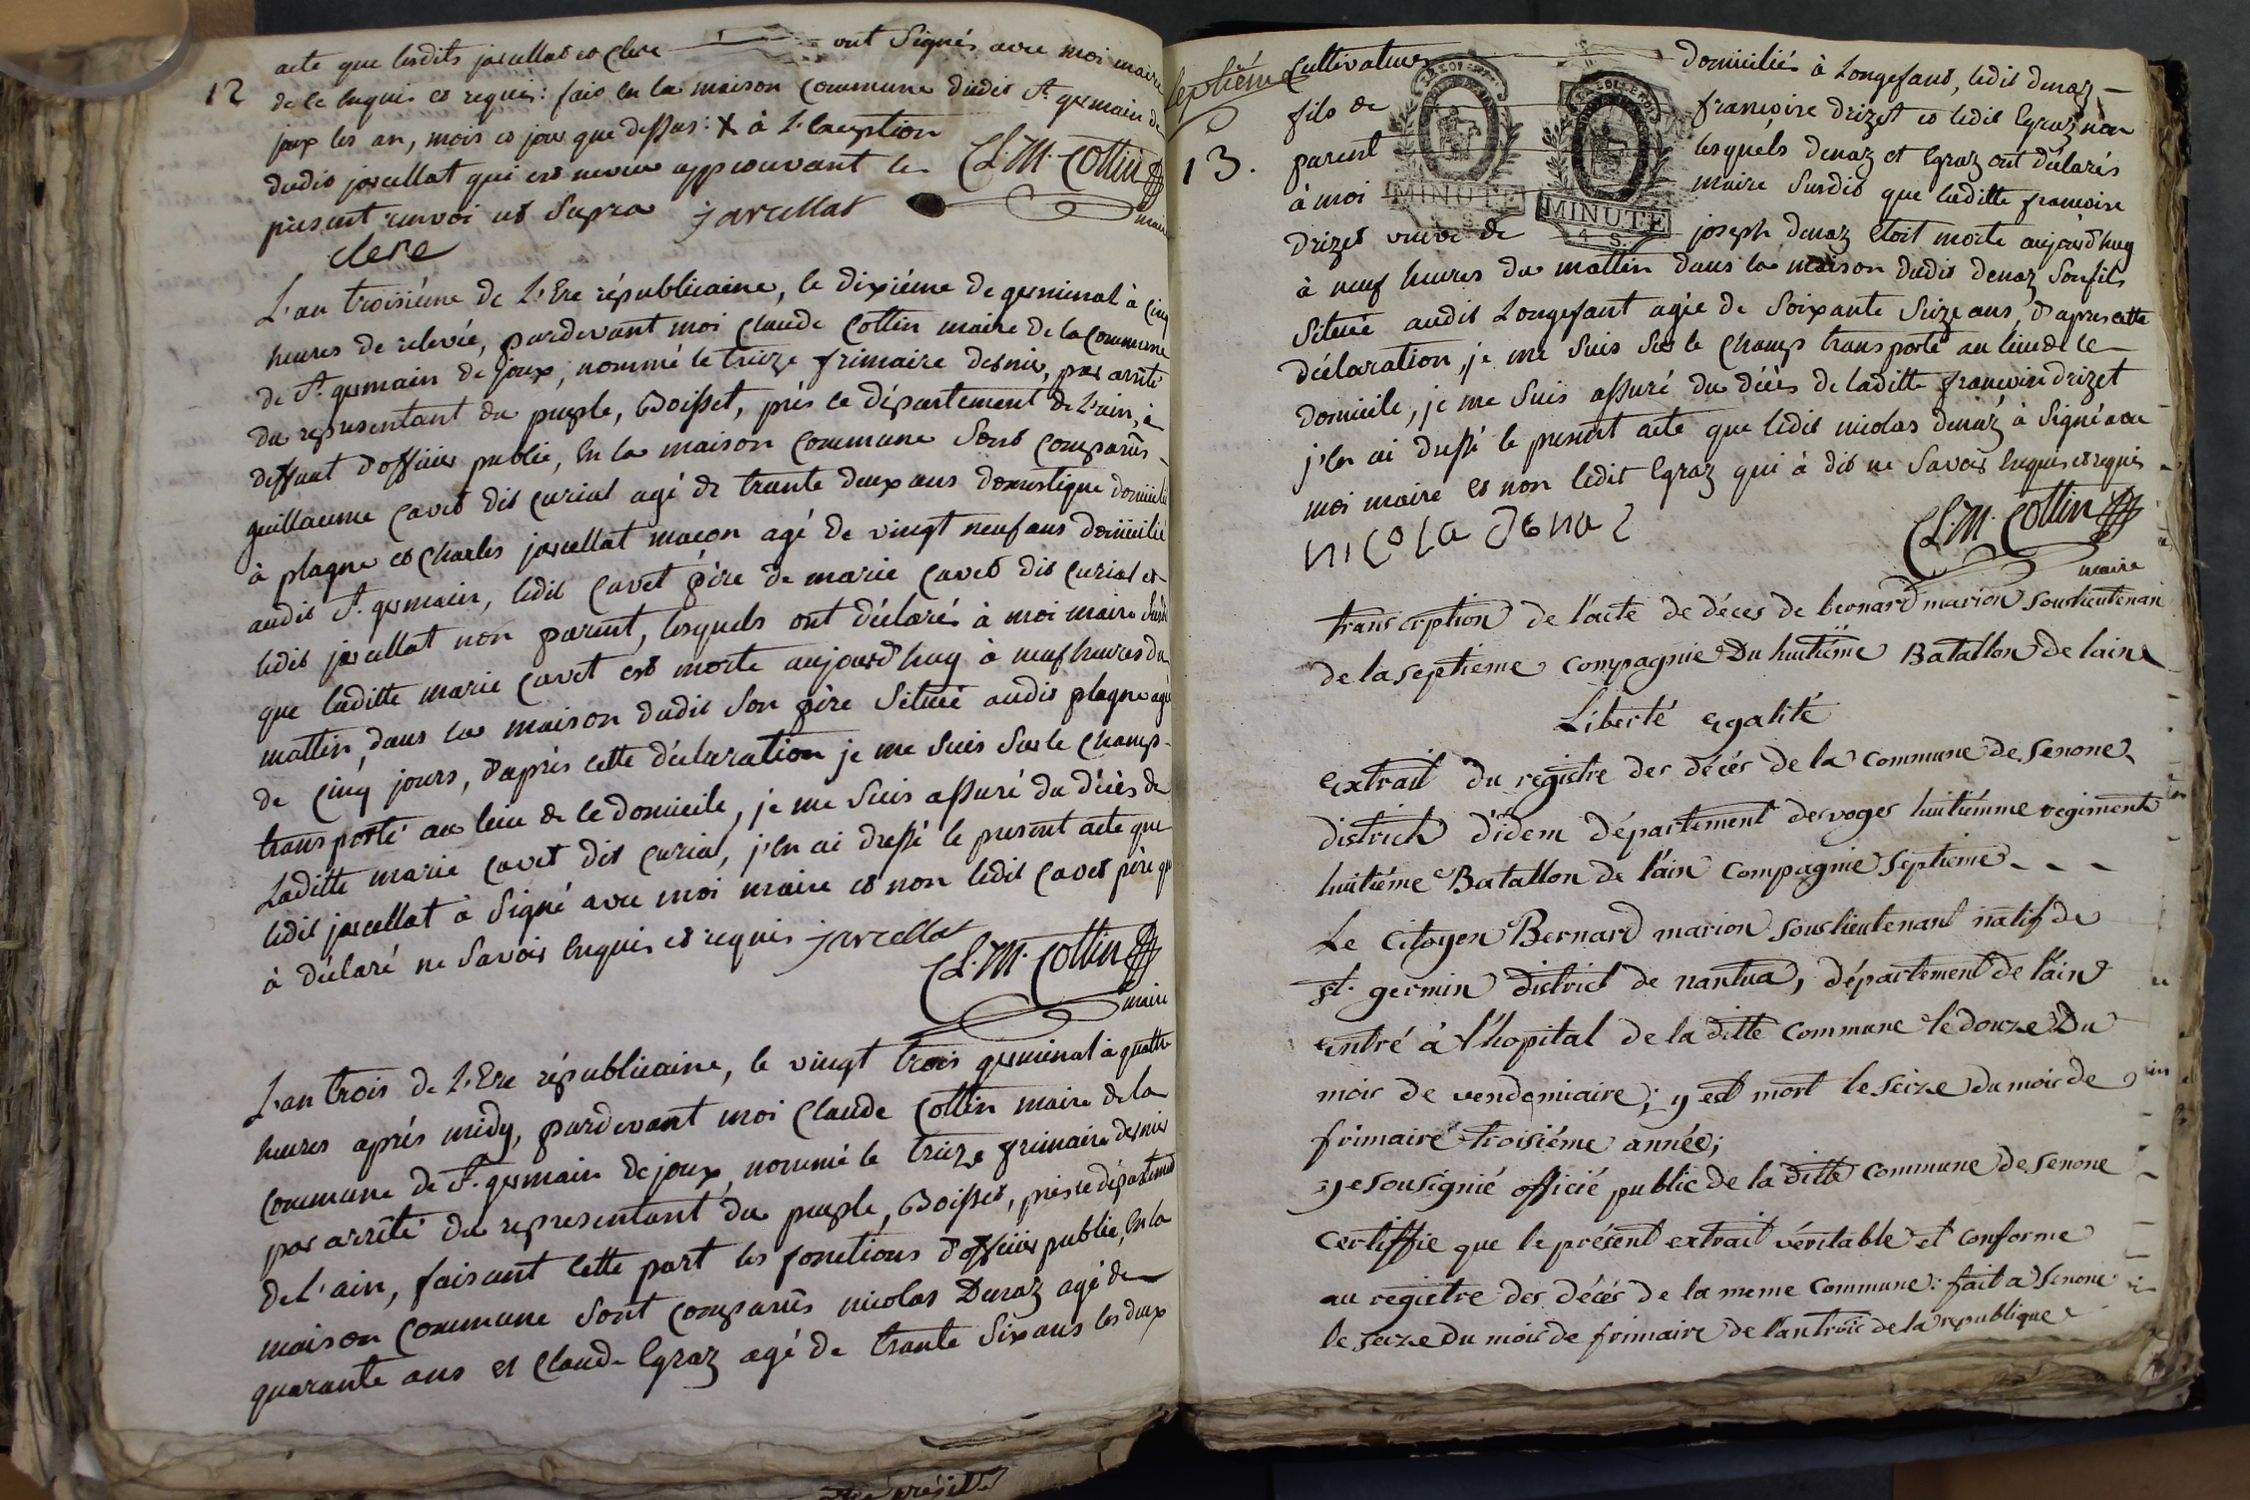 12
acte que lesdits jarcellat et Clerc ont Signés avec moi maire
de ce Enquis et requis: fait En la maison Commune dudit St. germain de
joux les an, mois et jour que dessus: X à L'Exception
dudit jarcellat qui
présent renvoi ut Supra jarcellat
Clerc
Cl. M. Cottin
maire
L'an troisiéme de L'Ere républicaine, le dixiéme de germinal à Cinq
heures de relevée, pardevant moi Claude Cottin maire de la Commune
de St. germain de joux, nommé le treize frimaire dernier, par arrêté
du représentant du peuple, Boisset, prés ce département de L'ain, à
deffaut d'officier public, En la maison Commune Sont Comparûs
guillaume Cavet dit Curial agé de trante deux ans domestique domicilié
à plagne et Charles jarcellat maçon agé de vingt neuf ans domicilié
audit St. germain, ledit Cavet pére de marie Cavet dit Curial et
ledit jarcellat non parent, lesquels ont déclarés à moi maire Susdit
que laditte marie Cavet est morte aujourd'huy à neuf heures du
mattin, dans la maison dudit Son pére Située audit plagne agée
de Cinq jours, d'aprés cette déclaration je me Suis Sur le Champ
transporté au lieu de ce domicile, je me Suis assuré du décès de
Laditte marie Cavet dit Curial, j'En ai dressé le présent acte que
ledit jarcellat à Signé avec moi maire et non ledit Cavet pére qui
à déclaré ne Savoir Enquis et requis jarcellat
Cl. M. Cottin
maire
L'an trois de L'Ere républicaine, le vingt trois germinal à quattre
heures aprés midy, pardevant moi Claude Cottin maire de la
Commune de St. germain de joux, nommé le treize frimaire dernier
par arrêté du représentant du peuple, Boisset, prés ce département
de L'ain, faisant cette part les fonctions d'officier public, En la
maison Commune Sont Comparûs nicolas Denaz agé de
quarante ans et Claude Egraz agé de trante Six ans les deux
septiém
13.
Cultivateurs domiciliés à Longefant, ledit denaz
fils de françoise drizet et ledit Egraz non
parent lesquels denaz et Egraz ont déclarés
à moi maire Susdit que laditte françoise
drizet veuve de joseph denaz étoit morte aujourd'huy
MINUTE
MINUTE
4 S.
à neuf heures du mattin dans la maison dudit denaz Son fils
Située audit Longefant agée de Soixante Seize ans, d'aprés cette
déclaration, je me Suis Sur le Champ transporté au lieu de ce
domicile, je me Suis assuré du décès de laditte françoise drizet
j'En ai dressé le présent acte que ledit nicolas denaz à Signé avec
moi maire et non ledit Egraz qui à dit ne Savoir Enquis et requis
nicola denaz
Cl. M. Cottin
maire
transcrption de l'acte de déces de bernard marion souslieutenan
de la septieme compagnie Du huitiéme Batallon de lain
Liberté egalité
extrait du registre des décés de la commune de Senone
district d'idem département des voges huitiémme regiment
huitiéme Batallon de l'ain compagnie septieme - - -
Le Citoyen Bernard marion souslieutenant natif de
st. germin district de nantua, département de l'ain
entré à l'hopital de la ditte commune le douze Du
mois de vendemiaire; y est mort le seize du mois de
frimaire troisiéme année;
je sousignié officié public de la ditte commune de senone
certiffie que le présent extrait véritable et conforme
au registre des décés de la meme commune: fait a senone
le seize du mois de frimaire de l'an trois de la republique